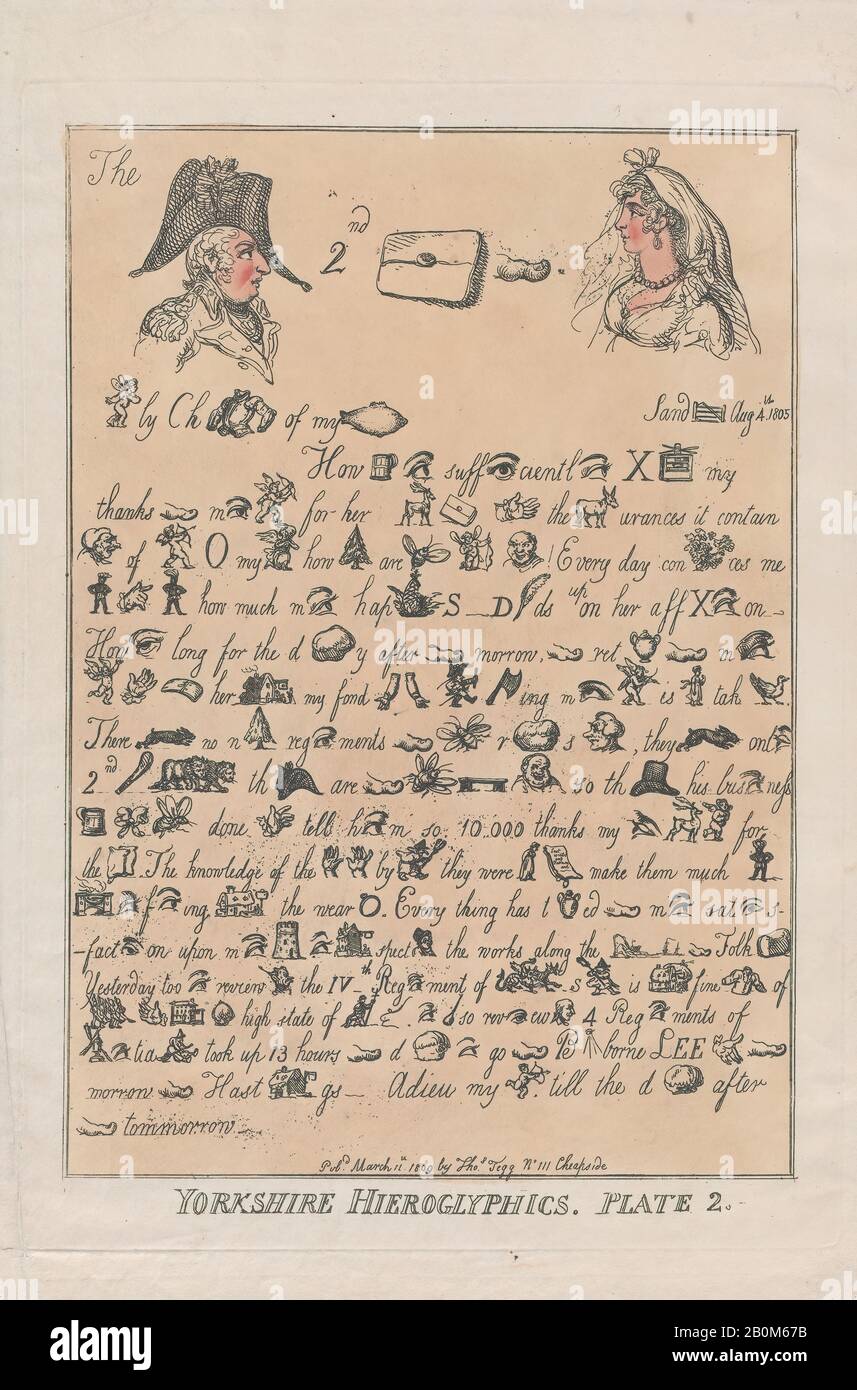 The 2nd
ly Ch of my Sand Aug 4. 1805
How suffcientl X my
thanks m for her the urances it contain
of O my how are ! Every day con ces me
how much m hap S D ds upon her aff X on
How long for the d y after morrow, ret m
her my fond ing m is tak
There no n reg ments r s , they onl
2nd th are so th his bus ness
done tell h m so 10.000 thanks my for
the . The knowledge of the by they were make them much
f ing the wear O. Every thing has t ed m sat s-
-fact on upon m spect the works along the Folk
Yesterday too review the IVth Reg ment of s is fine of
high state of . so rev ew 4 Reg ments of
tia took up 13 hours d go B borne LEE
morrow Hast gs Adieu my till the d after
tommorrow
Pubd March 1809 by Thos Tegg No 111 Cheapside
YORKSHIRE HIEROGLYPHICS. PLATE 2.
alamy
Image ID: 2B0M67B
www.alamy.com